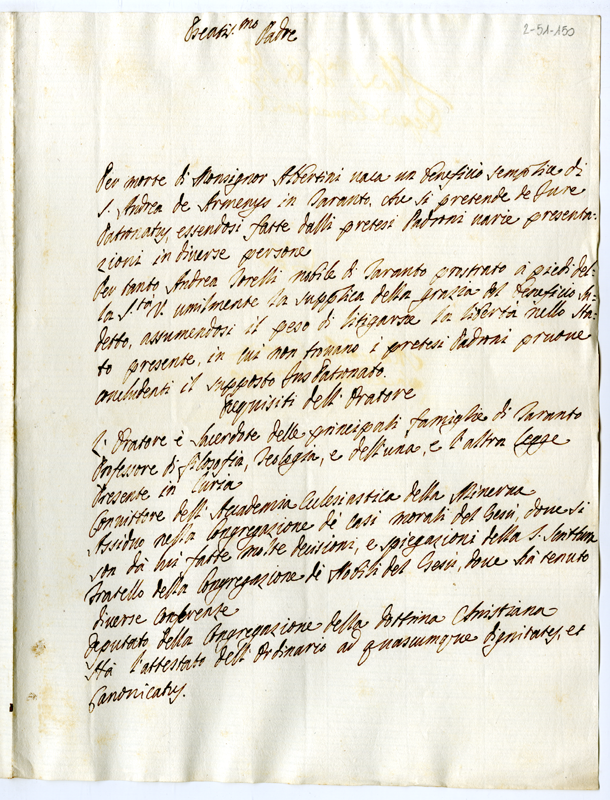 Beatis.mo Padre
2-51-150
Per morte di Monsignor Albertini vaca un beneficio semplice di
S. Andrea de Armenys in Taranto, che si pretende de Jure
Patronatus, essendosi fatte dalli pretesi Padroni varie presenta-
zioni in diverse persone
Per tanto Andrea Torelli nobile di Taranto prostrato a piedi del-
la S.tà V. umilmente la supplica della grazia del beneficio su-
detto, assumendosi il peso di litigarsi la libertà nello sta-
to presente, in cui non trovano i pretesi Padroni pruove
concludenti il supposto Jus Patronato.
Requisiti dell'Oratore
L'Oratore è Sacerdote delle principali famiglie di Taranto
Professore di filosofia, Teologia, e dell'una, e l'altra Legge
Presente in Curia
Convittore dell'Accademia Eclesiastica della Minerva
Assiduo nella Congregazione de Casi morali del Gesù, dove si
son da lui fatte molte decisioni, e spiegazioni della S. Scrittura
Fratello della Congregazione di Nobili del Gesù, dove hà tenuto
diverse Conferenze
Deputato della Congregazione della dottrina Christiana
Hà l'attestato dell'Ordinario ad quascumque dignitates, et
Canonicatus.